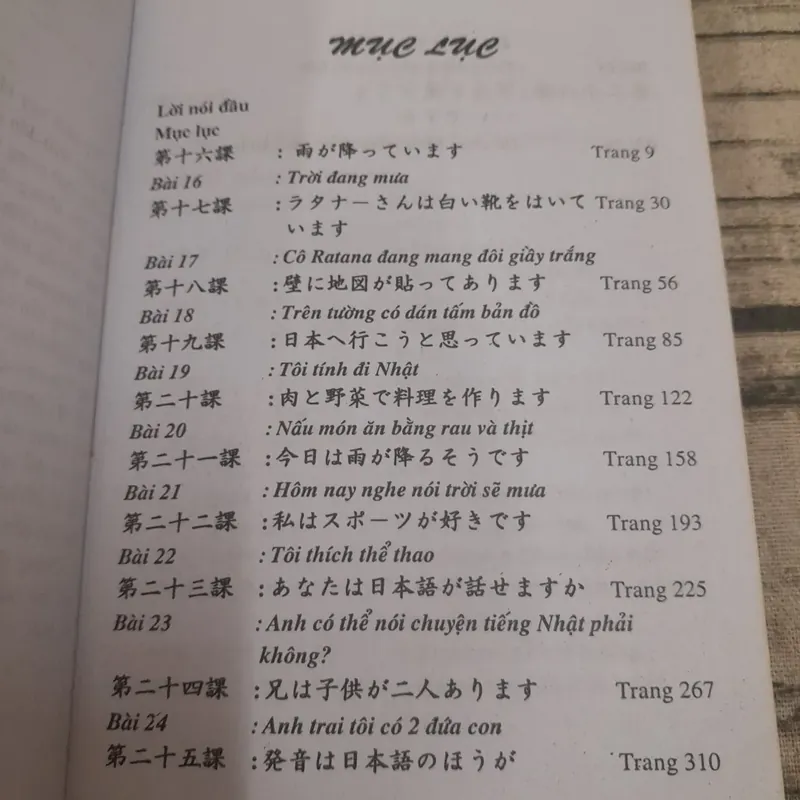 MỤC LỤC
Lời nói đầu
Mục lục
第十六課 : 雨が降っています Trang 9
Bài 16 : Trời đang mưa
第十七課 : ラタナーさんは白い靴をはいて Trang 30
います
Bài 17 : Cô Ratana đang mang đôi giầy trắng
第十八課 : 壁に地図が貼ってあります Trang 56
Bài 18 : Trên tường có dán tấm bản đồ
第十九課 : 日本へ行こうと思っています Trang 85
Bài 19 : Tôi tính đi Nhật
第二十課 : 肉と野菜で料理を作ります Trang 122
Bài 20 : Nấu món ăn bằng rau và thịt
第二十一課 : 今日は雨が降るそうです Trang 158
Bài 21 : Hôm nay nghe nói trời sẽ mưa
第二十二課 : 私はスポーツが好きです Trang 193
Bài 22 : Tôi thích thể thao
第二十三課 : あなたは日本語が話せますか Trang 225
Bài 23 : Anh có thể nói chuyện tiếng Nhật phải
không?
第二十四課 : 兄は子供が二人あります Trang 267
Bài 24 : Anh trai tôi có 2 đứa con
第二十五課 : 発音は日本語のほうが Trang 310